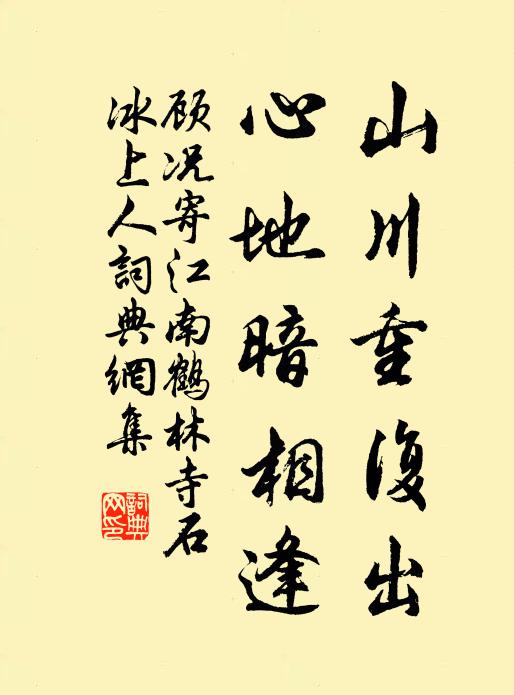 山川重復出
心地暗相逢
顾况寄江南鶴林寺石
冰上人詞典網集
詞典网印